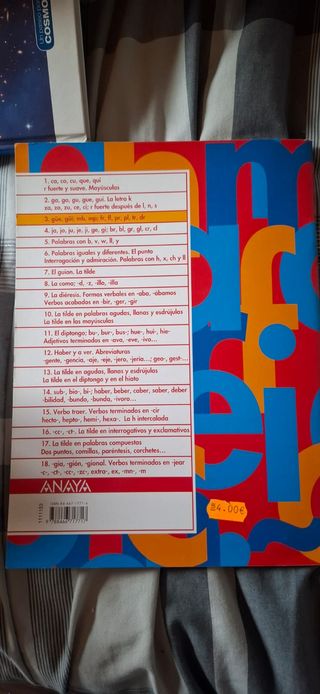 COSMO
1. ca, co, cu, que, qui
r fuerte y suave. Mayúsculas
2. ga, go, gu, gue, gui. La letra k
za, zo, zu, ce, ci; r fuerte después de l, n, s
3. güe, güi, mb, mp; fr, fl, pr, pl, tr, dr
4. ja, jo, ju, je, ji, ge, gi; br, bl, gr, gl, cr, cl
5. Palabras con b, v, w, ll, y
6. Palabras iguales y diferentes. El punto
Interrogación y admiración. Palabras con h, x, ch y ll
7. El guion. La tilde
8. La coma; -d, -z, -illo, -illa
9. La diéresis. Formas verbales en -aba, -ábamos
Verbos acabados en -bir, -ger, -gir
10. La tilde en palabras agudas, llanas y esdrújulas
La tilde en las mayúsculas
11. El diptongo; bu-, bur-, bus-; hue-, hui-, hie-
Adjetivos terminados en -ava, -eve, -ivo...
12. Haber y a ver. Abreviaturas
-gente, -gencia, -aje, -eje, -jero, -jería...; geo-, gest-...
13. La tilde en agudas, llanas y esdrújulas
La tilde en el diptongo y en el hiato
14. sub-, bio-, bi-; haber, beber, caber, saber, deber
-bilidad, -bundo, -bunda, -ívoro...
15. Verbo traer. Verbos terminados en -cir
hecto-, hepta-, hemi-, hexa-. La h intercalada
16. -cc-, -ct-. La tilde en interrogativos y exclamativos
17. La tilde en palabras compuestas
Dos puntos, comillas, paréntesis, corchetes...
18. -gia, -gión, -gional. Verbos terminados en -jear
-c-, -ct-, -cc-, -zc-, extra-, ex, -mn-, -m
ANAYA
1111103
4.00€